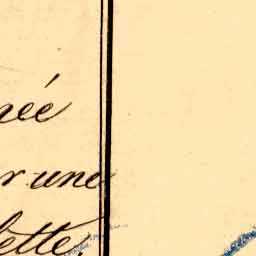 née
r une
lette